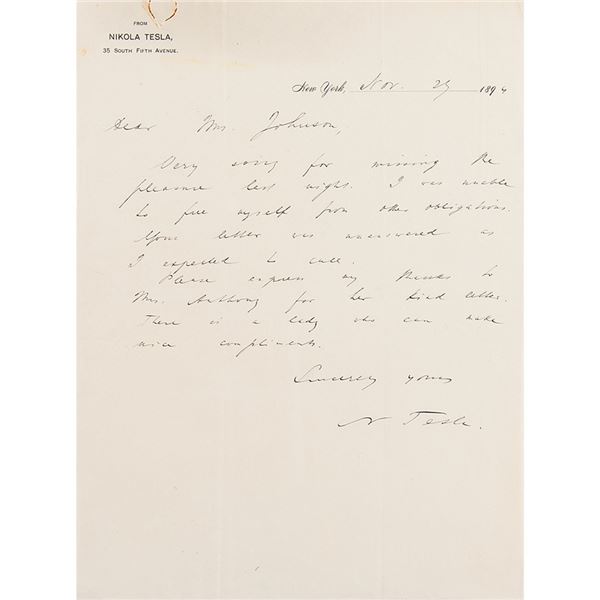 FROM
NIKOLA TESLA,
35 SOUTH FIFTH AVENUE.
New York, Nov. 29 1894
Dear Mrs. Johnson,
Very sorry for missing the
pleasure last night. I was unable
to free myself from other obligations.
Your letter was unanswered as
I expected to call.
Please express my thanks to
Mrs. Anthony for her kind letter.
There is a lady who can make
nice compliments.
Sincerely yours
N Tesla.